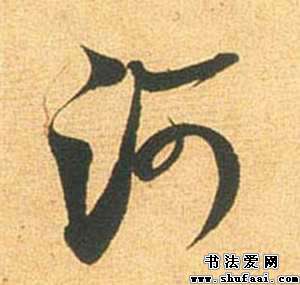 河
书法爱网
www.shufaai.com